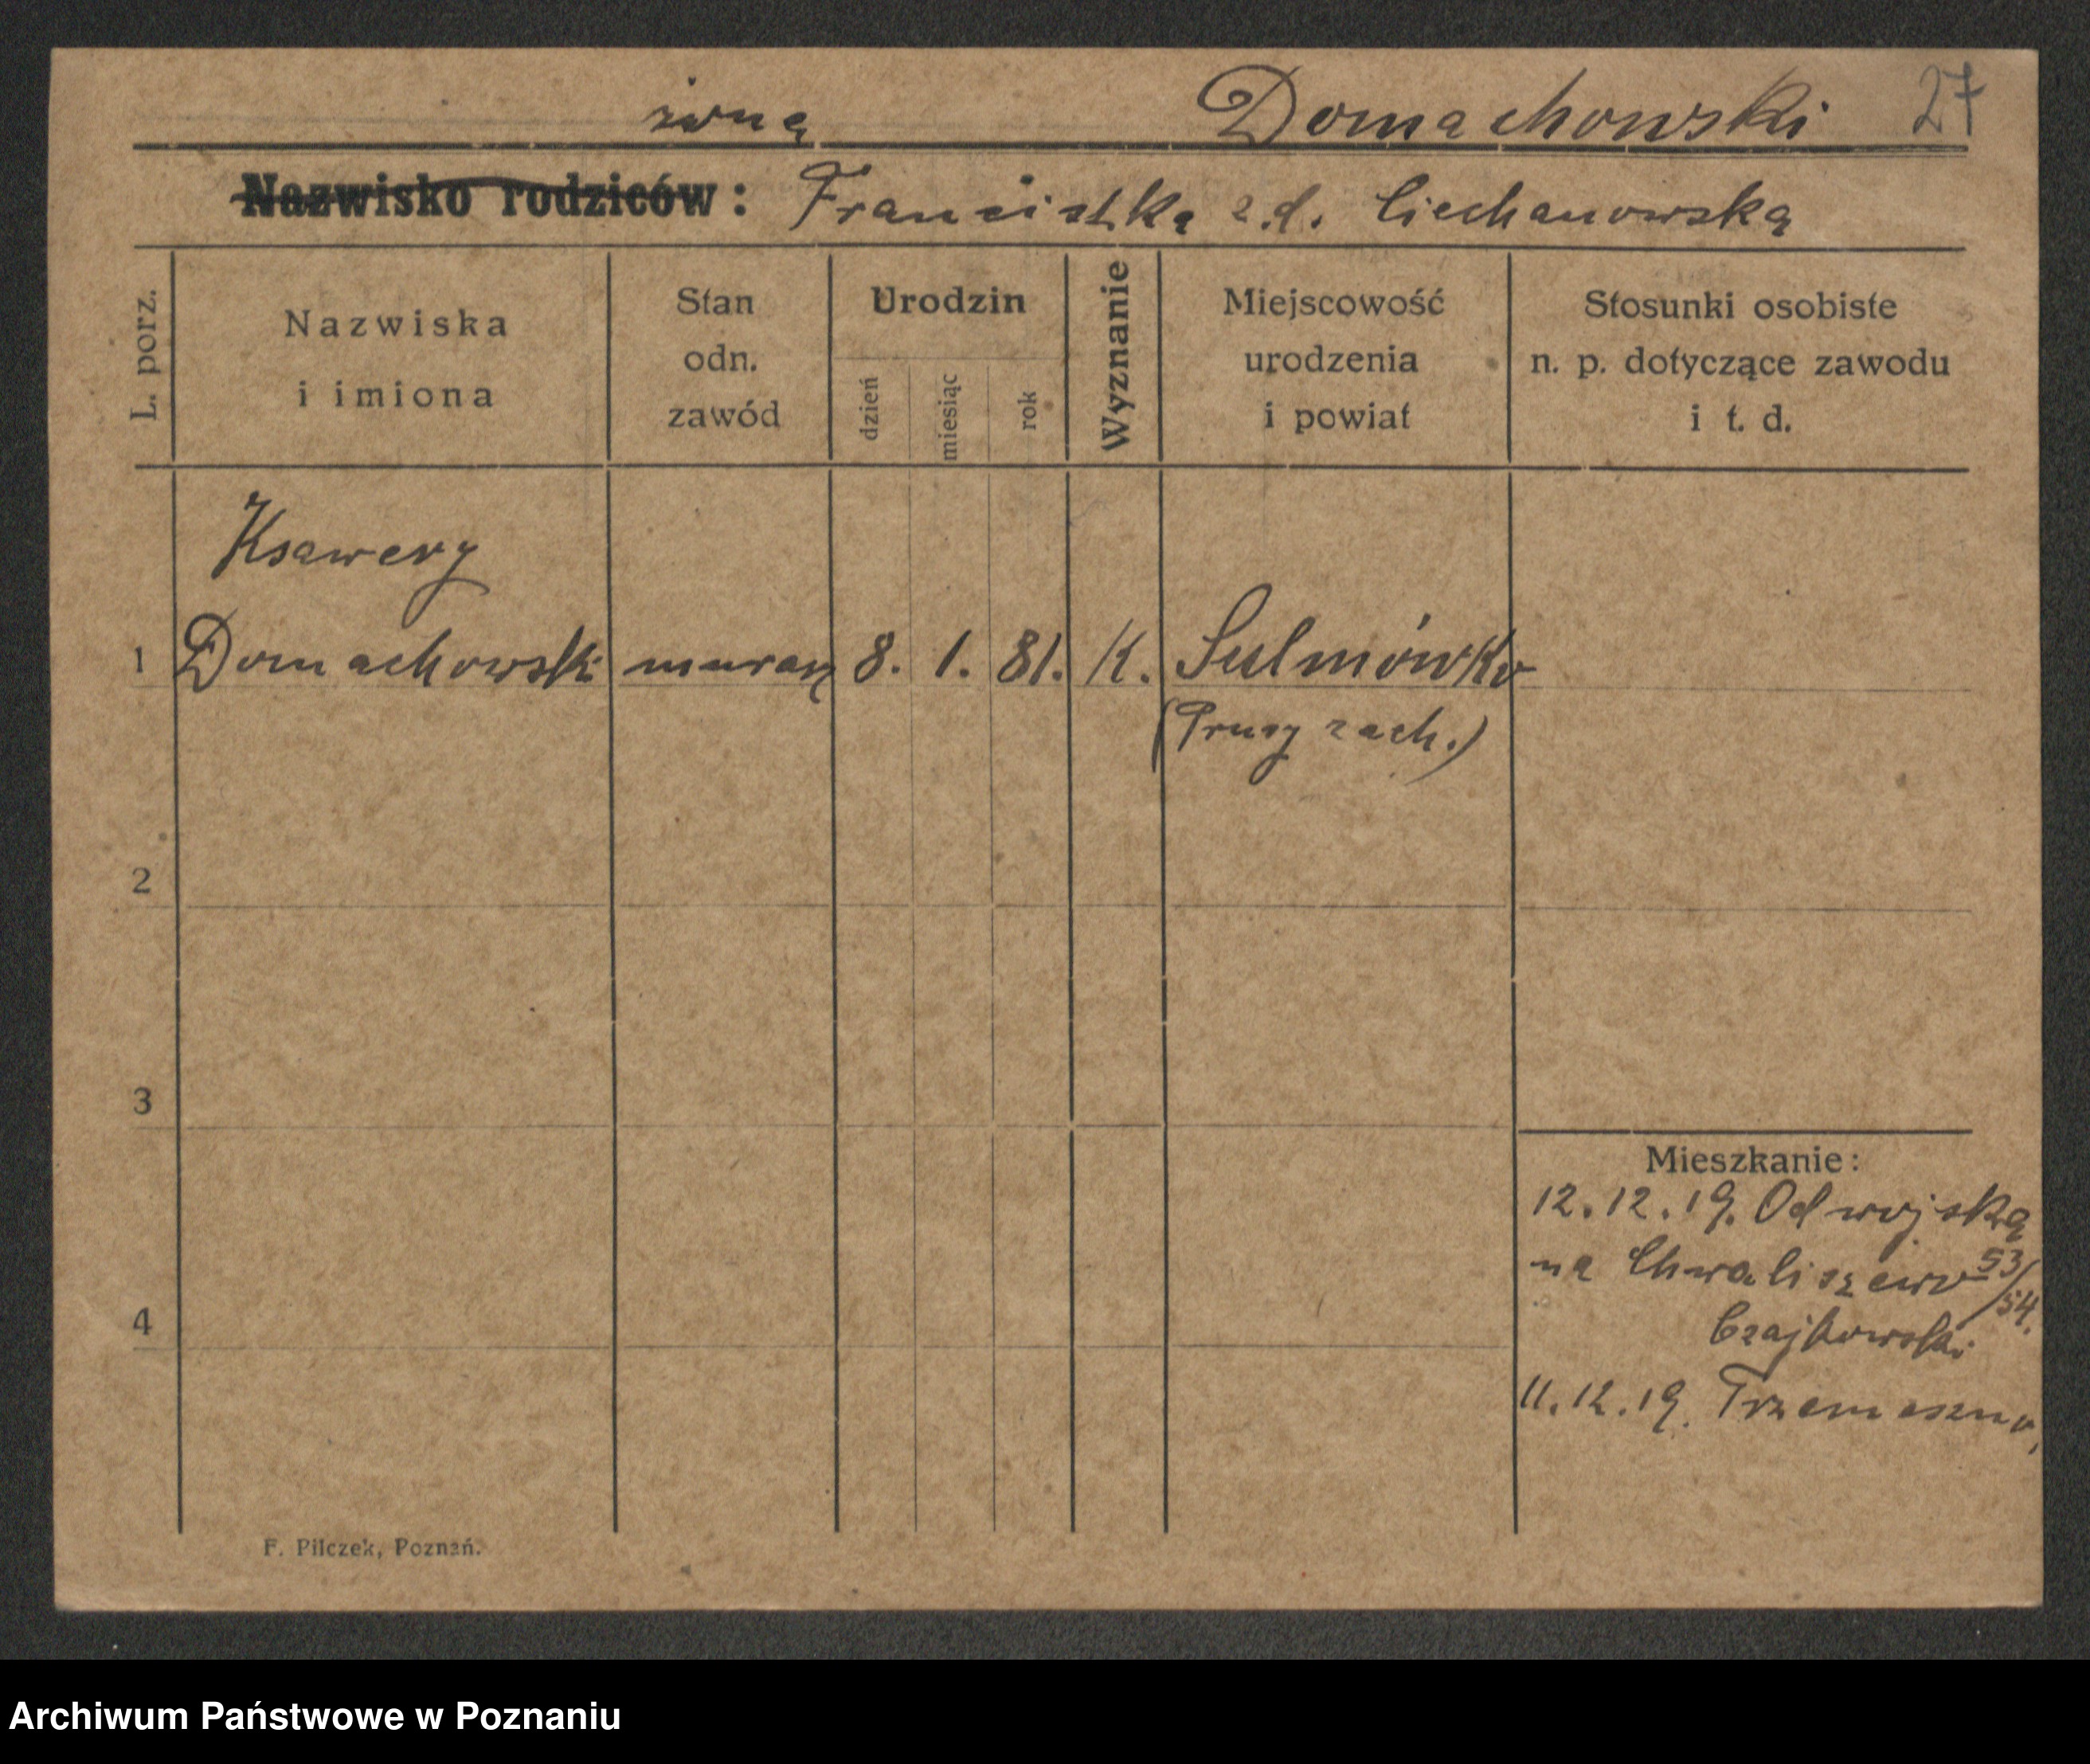 żoną Domachowski 27
Nazwisko rodziców: Franciszka z.d. Ciechanowska
L. porz.
Nazwiska i imiona
Stan odn. zawód
Urodzin
dzień
miesiąc
rok
Wyznanie
Miejscowość urodzenia i powiat
Stosunki osobiste n. p. dotyczące zawodu i t. d.
Ksawery
1 Domachowski murarz 8. 1. 81. K. Sulmówko
(Prusy zach.)
2
3
Mieszkanie:
12.12.19. Od wojska
na Chwaliszewo 53/54.
4
Czajkowski
11.12.19. Trzemeszno,
F. Pilczek, Poznań.
Archiwum Państwowe w Poznaniu